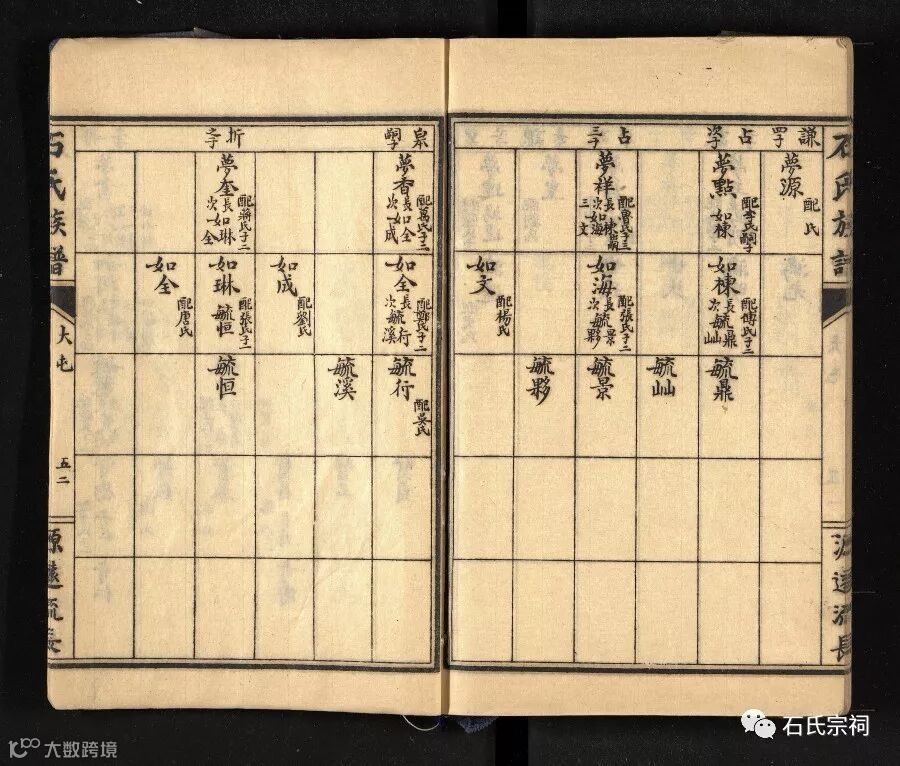 石氏族譜
源遠流長
謙四子
占次子
占三子
夢源
配氏
夢點
配李氏嗣子
如棟
夢祥
配魯氏子三
長如棟嗣
次如海
三如文
如棟
配傅氏子二
長毓鼎
次毓屾
如海
配張氏子二
長毓景
次毓夥
如文
配楊氏
毓鼎
毓屾
毓景
毓夥
臬嗣子
折之子
夢香
配萬氏子二
長如全
次如成
夢奎
配蔣氏子二
長如琳
次如全
如全
配鄭氏子二
長毓行
次毓溪
如成
配劉氏
如琳
配張氏子二
毓恒
如全
配唐氏
毓行
配吳氏
毓溪
毓恒
石氏族譜
大屯
五二
源遠流長
石氏宗祠
大数跨境